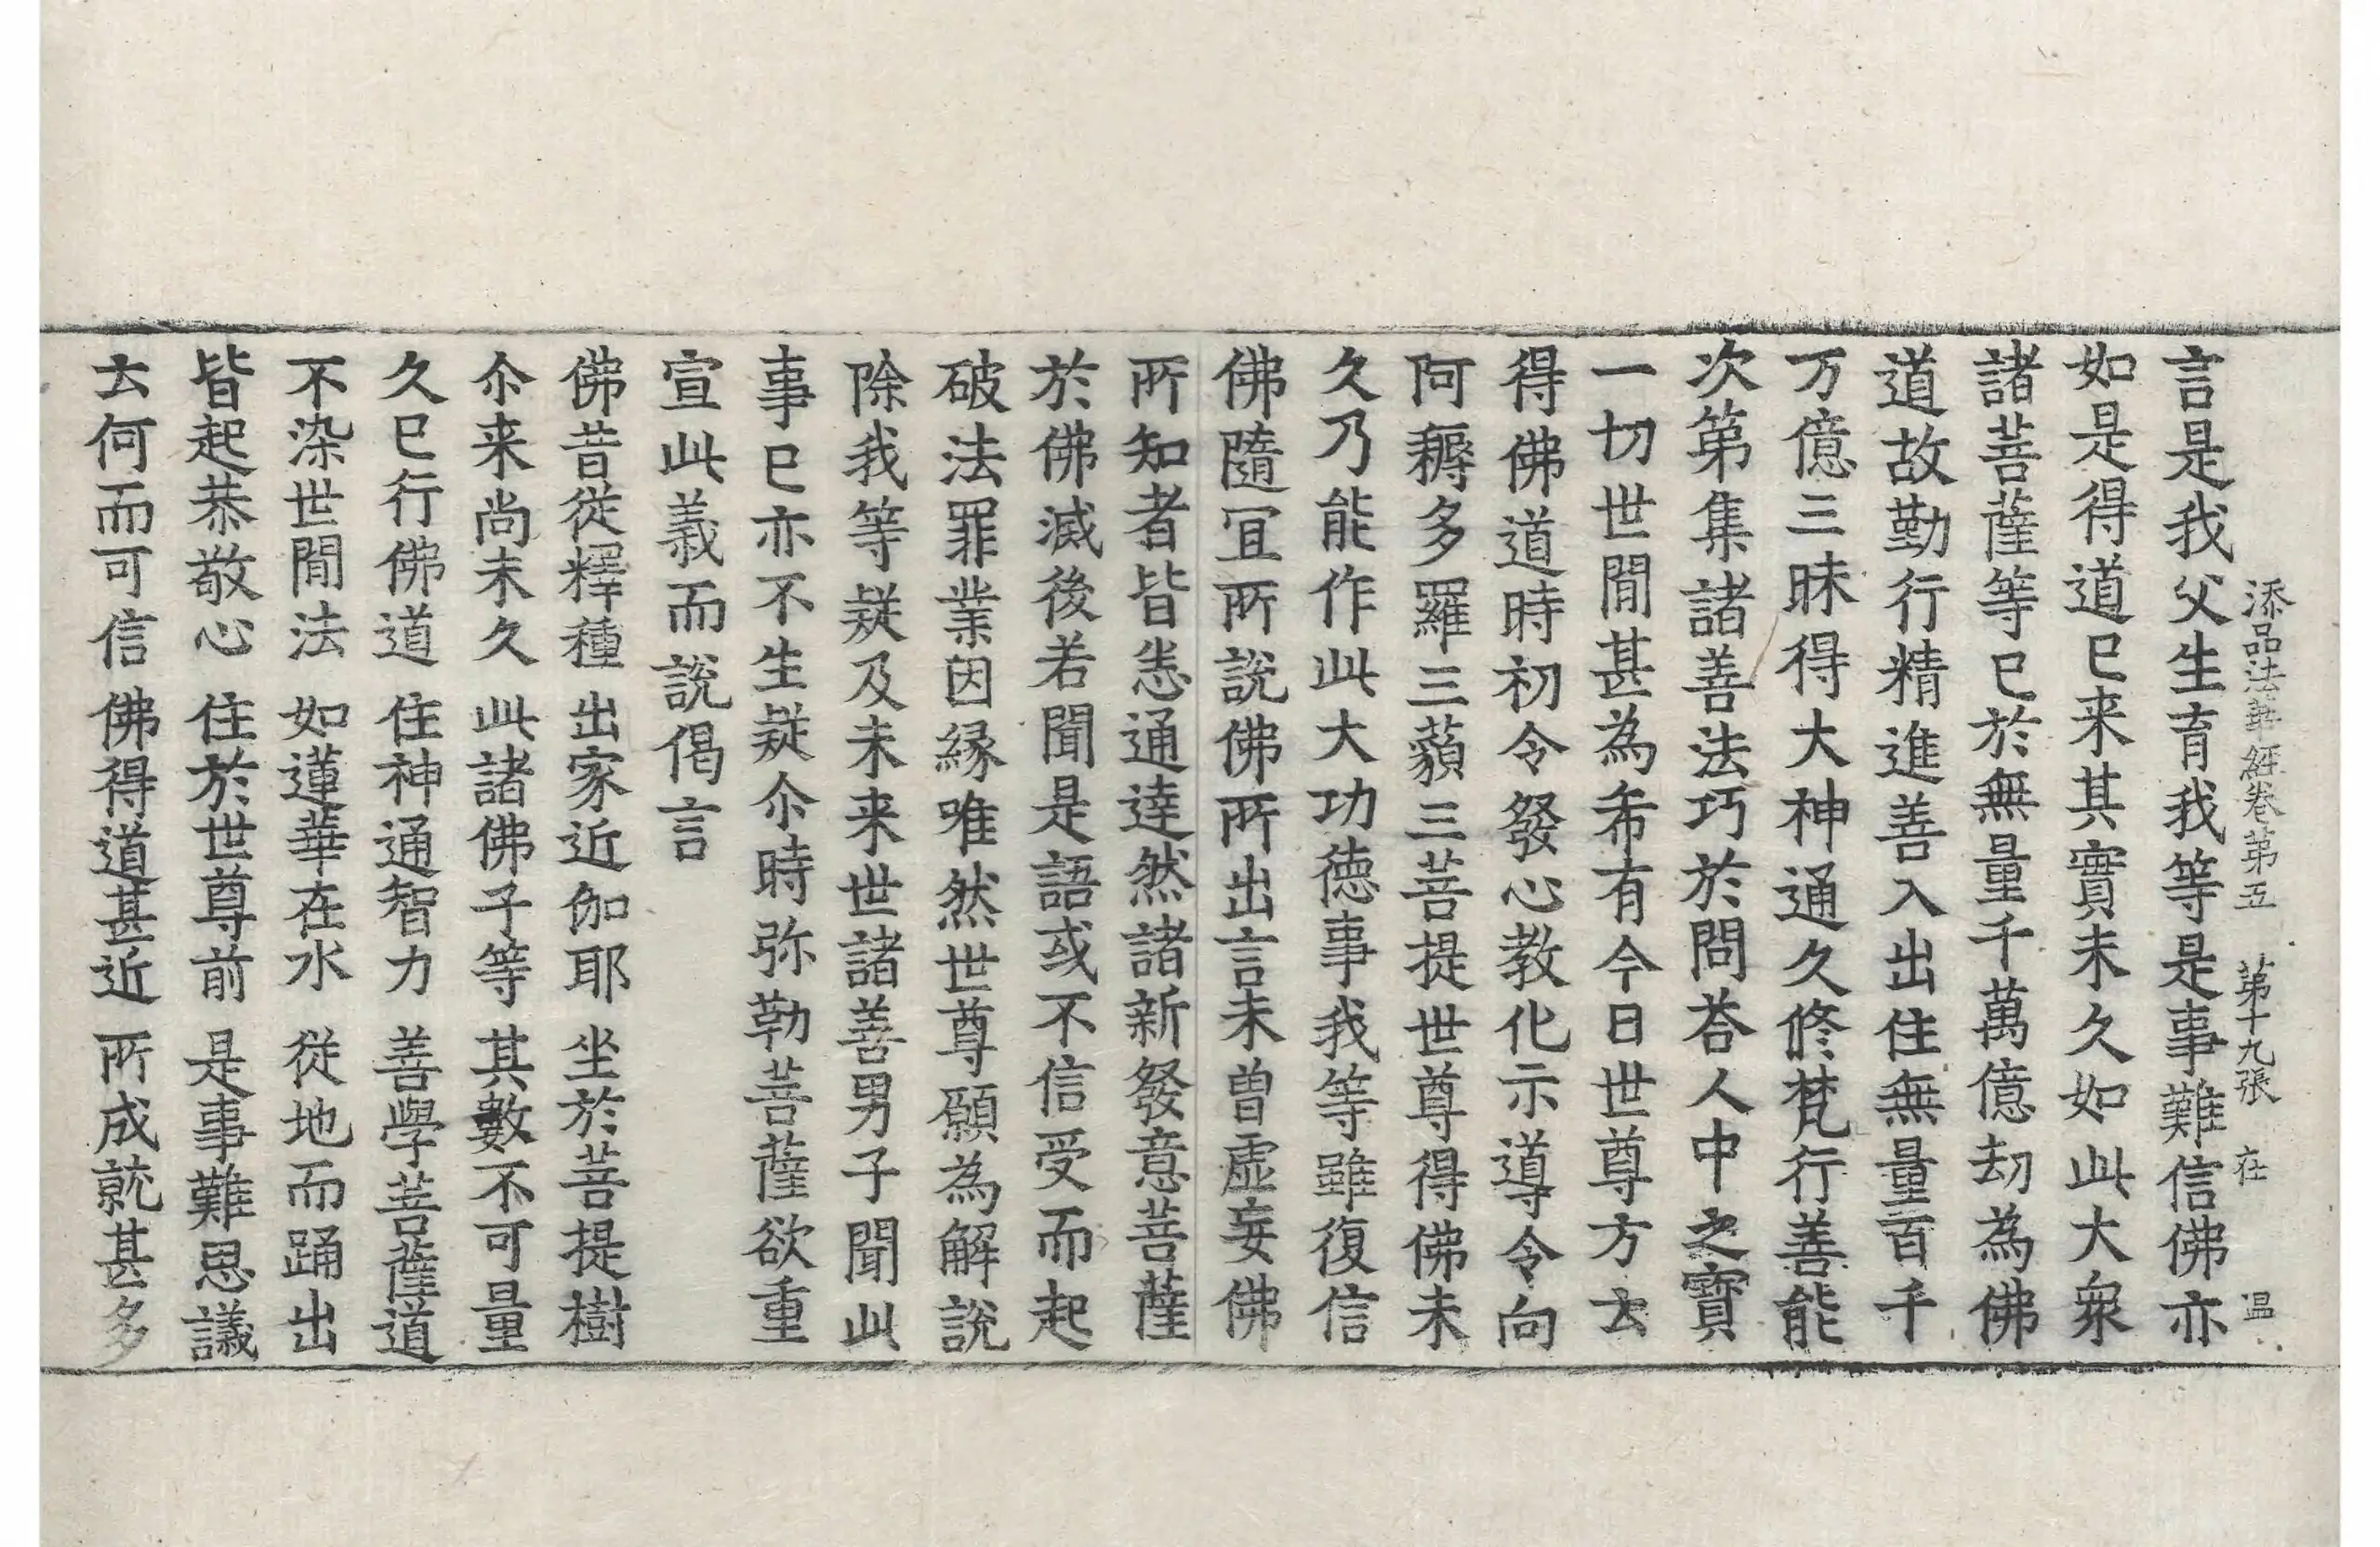 添品法華經卷第五　第十九張　在　温
言是我父生育我等是事難信佛亦
如是得道已来其實未久如此大衆
諸菩薩等已於無量千萬億劫為佛
道故勤行精進善入出住無量百千
万億三昧得大神通久修梵行善能
次第集諸善法巧於問荅人中之寶
一切世間甚為希有今日世尊方云
得佛道時初令發心教化示導令向
阿耨多羅三藐三菩提世尊得佛未
久乃能作此大功德事我等雖復信
佛隨宜所說佛所出言未曽虛妄佛
所知者皆悉通達然諸新發意菩薩
於佛滅後若聞是語或不信受而起
破法罪業因緣唯然世尊願為解說
除我等疑及未来世諸善男子聞此
事已亦不生疑尒時弥勒菩薩欲重
宣此義而說偈言
佛昔從釋種　出家近伽耶　坐於菩提樹
尒来尚未久　此諸佛子等　其數不可量
久已行佛道　住神通智力　善學菩薩道
不染世間法　如蓮華在水　從地而踊出
皆起恭敬心　住於世尊前　是事難思議
云何而可信　佛得道甚近　所成就甚多